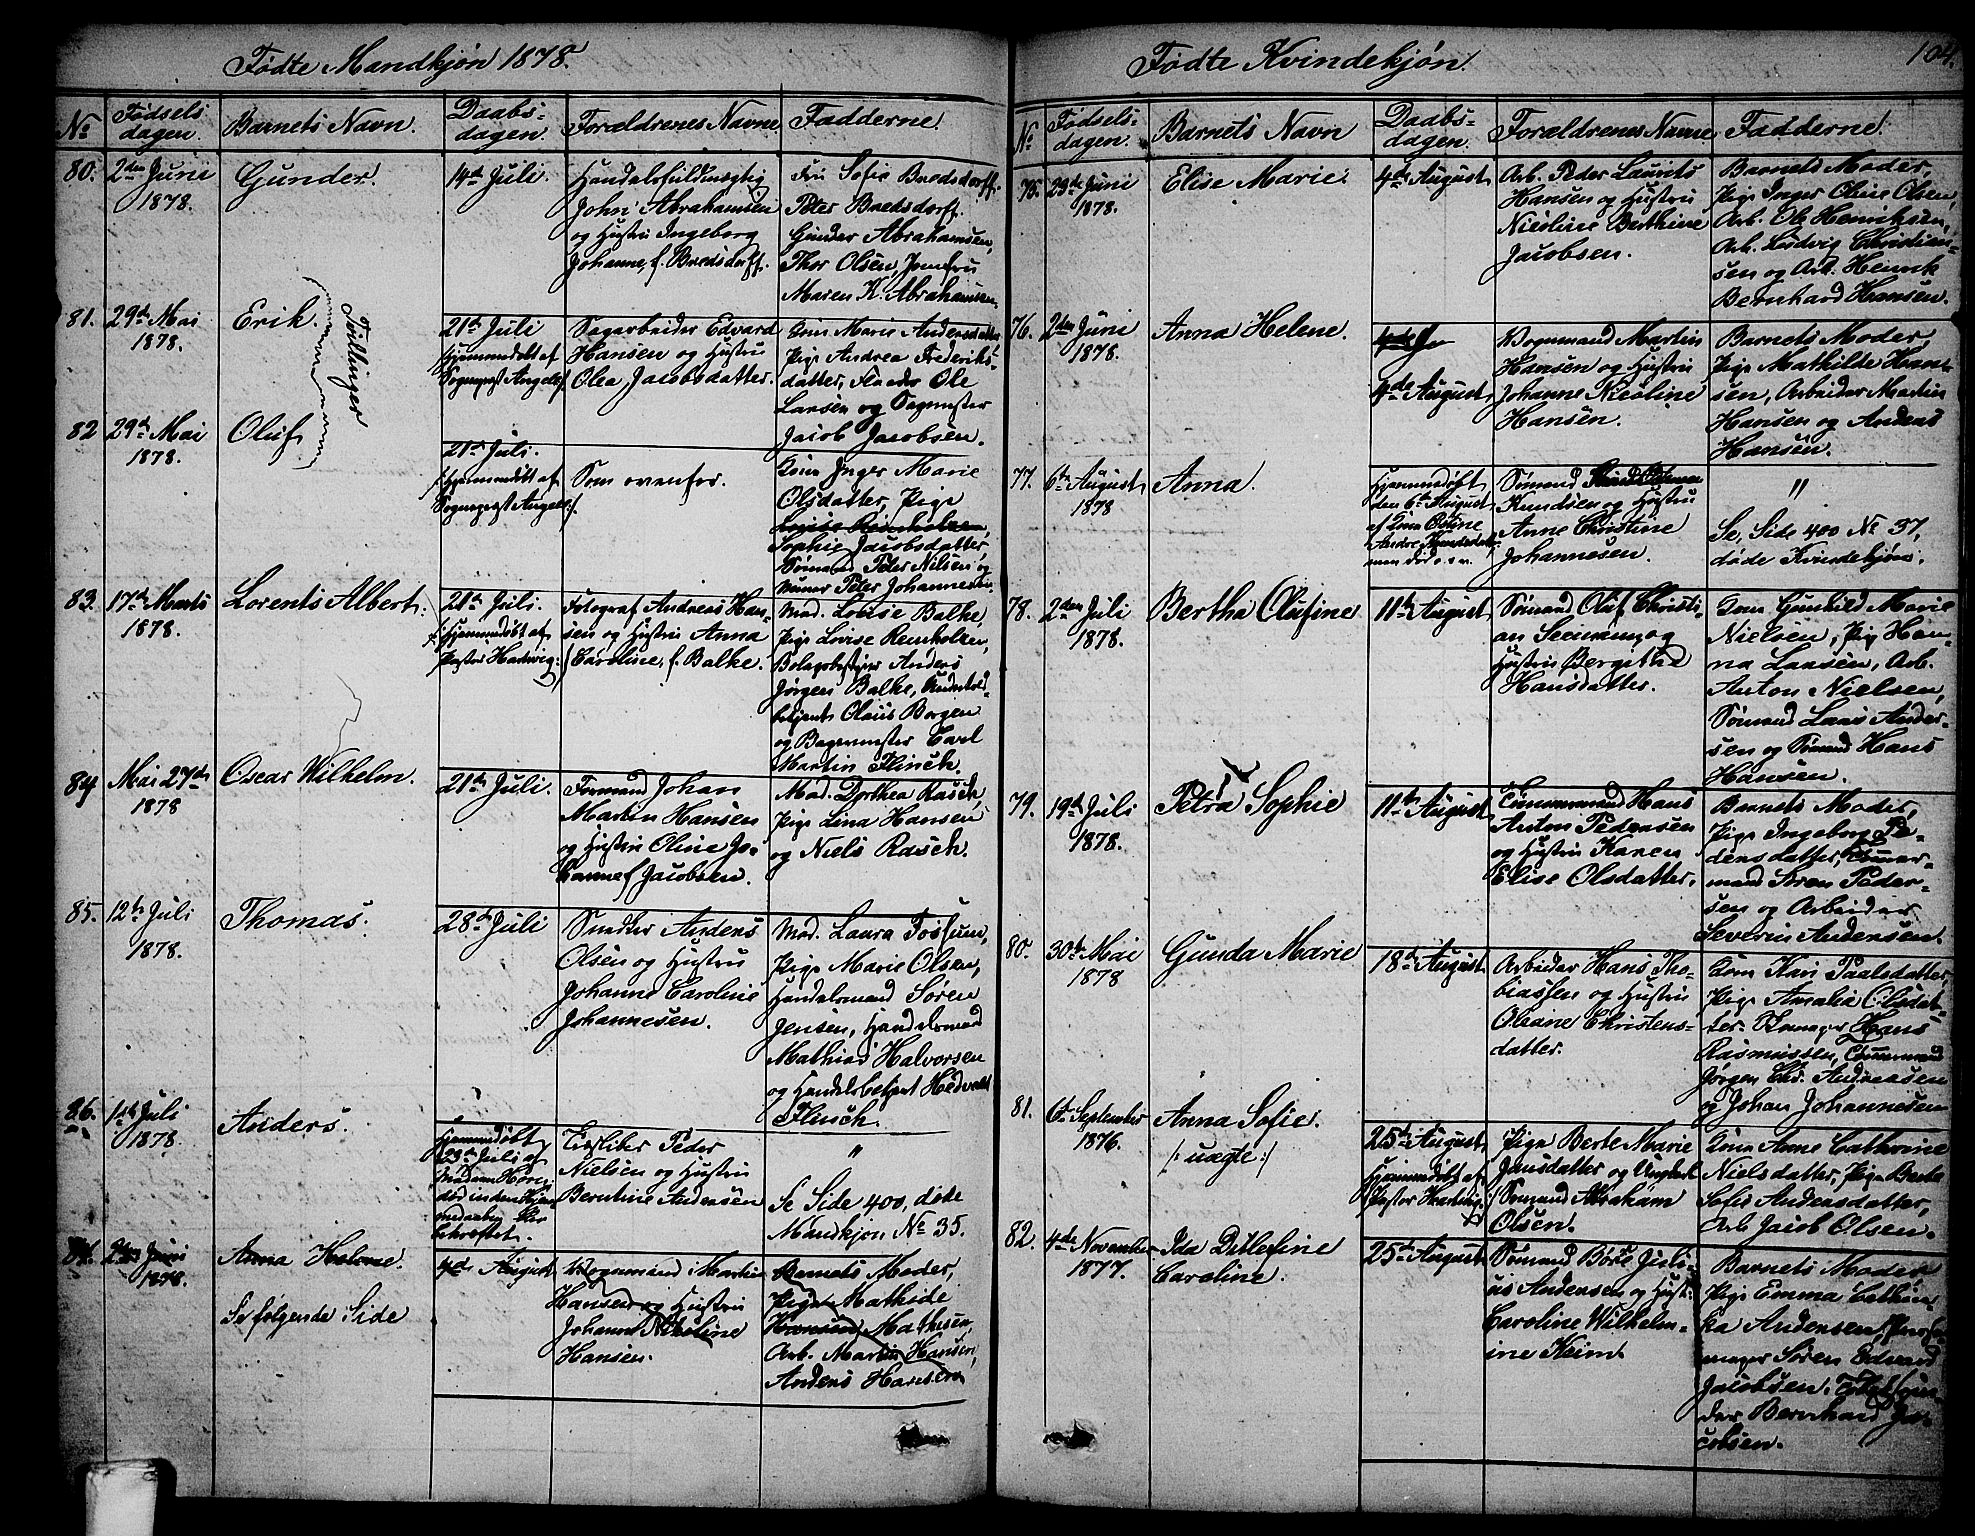 Fødte Mandkjøn 1878.
No
Fødsels
dagen.
Barnets Navn.
Daabs-
dagen.
Forældrenes Navne
Fadderne.
80.
2den Juni
1878.
Gunder.
14de Juli.
Handelsfuldmægtig
John Abrahamsen
og Hustru Ingeborg
Johanne, f. Bredsdorff.
Fru Sofie Bredsdorff.
Peter Bredsdorff.
Gunder Abrahamsen,
Thor Olsen, Jomfru
Maren K. Abrahamsen.
81.
29de Mai
1878.
Erik.
Tvillinger
21de Juli
Hjemmedøbt af
Sognepræst Angell
Sagarbeider Edvard
Hansen og Hustru
Olea Jacobsdatter.
Kone Marie Andersdatter,
Pige Andrea Frederiks-
datter, Ole
Larsen og Sagmester
Jacob Jacobsen.
82
29de Mai
1878.
Oluf.
21de Juli.
/: Hjemmedøbt af
Sognepræst Angell :/
Som ovenfor.
Kone Inger Marie
Olsdatter, Pige
Lovise Reinholsen,
Sophie Jacobsdatter,
Sømand Peter Nilsen og
Murer Peter Johannesen.
83.
17de Marts
1878.
Lorents Albert.
21de Juli.
/: Hjemmedøbt af
Pastor Hartvig :/
Fotograf Andreas Han-
sen og Hustru Anna
Caroline, f. Balke.
Mad. Lovise Balke,
Pige Lovise Reinholsen,
Bolagsbestyrer Anders
Jørgen Balke,
betjent Olaus Borgen
og Bagermester Carl
Martin Flinch.
84
Mai 27de
1878
Oscar Wilhelm.
21de Juli.
Formand Johan
Martin Hansen
og Hustru Oline Jo-
hanne f. Jacobsen.
Mad. Dorthea Rasch,
Pige Lina Hansen
og Niels Rasch.
85.
12te Juli
1878.
Thomas.
28de Juli
Smed Anders
Olsen og Hustru
Johanne Caroline
Johannesen.
Mad. Laura Fossum,
Pige Marie Olsen,
Handelsmand Søren
Jensen, Handelsmand
Mathias Halvorsen
og Handelsbetjent Hedvald
Flinch.
86.
1ste Juli
1878.
Anders.
Hjemmedøbt
23de Juli af
Madam
død inden Hjem-
medaaben blev
bekræftet.
Peder
Nielsen og Hustru
Berntine Andersen
"
Se Side 400, døde
Mandkjøn No 35.
87.
2den Juni
1878.
Anna Helene.
Se følgende Side
4de August
Vognmand Martin
Hansen og Hustru
Johanne Nicoline
Hansen.
Barnets Moder,
Pige Mathilde
Hansen, Mathisen,
Arb. Martin Hansen,
Anders Hansen
Fødte Kvindekjøn.
104.
No
Fødsels-
dagen.
Barnets Navn
Daabs-
dagen.
Forældrenes Navne
Fadderne.
75.
29de Juni
1878.
Elise Marie.
4de August
Arb. Peder Laurits
Hansen og Hustru
Nicoline Berthine
Jacobsen.
Barnets Moder,
Pige Inger Oline Olsen,
Arb. Ole Henriksen,
Arb. Ludvig Christian-
sen og Arb. Henrik
Bernhard Hansen.
76.
2den Juni
1878.
Anna Helene.
4de
4de August
Vognmand Martin
Hansen og Hustru
Johanne Nicoline
Hansen.
Barnets Moder,
Pige Mathilde Han-
sen, Arbeider Martin
Hansen og Anders
Hansen.
77.
6te August
1878
Anna.
Hjemmedøbt
den 6te August
af Kone
Andre
Sømand
Knudsen og Hustru
Anne Christine
Johannesen.
"
Se, Side 400 No 37,
døde Kvindekjøn.
78.
2den Juli
1878.
Bertha Olufine
11te August
Sømand Oluf Christi-
an Seemann og
Hustru Bergithe
Hansdatter.
Kone Gunhild Marie
Nielsen, Pige Han-
na Larsen, Arb.
Anton Nielsen,
Sømand Lars Ander-
sen og Sømand Hans
Hansen.
79.
19de Juli
1878.
Petra Sophie
11te August
Tømmermand Hans
Anton Pedersen
og Hustru Karen
Elise Olsdatter.
Barnets Moder,
Pige Ingeborg Pe-
dersdatter, Tømmer-
mand Søren Peder-
sen og Arbeider
Severin Andersen.
80.
30te Mai
1878
Gunda Marie
18de August
Arbeider Hans Tho-
biassen og Hustru
Oleane Christens-
datter.
Kone Kari Paalsdatter,
Pige Amalia Olsdat-
ter. Hans
Rasmussen, Tømmermand
Jørgen Chr. Andreasen
og Johan Johannesen
81.
6te September
1876.
Anna Sofie.
/: uægte :/
25de August
Hjemmedøbt af
Pastor Hartvig
Pige Berte Marie
Jansdatter og Ungkarl
Sømand Abraham
Olsen.
Kone Anne Cathrine
Nielsdatter, Pige Berte
Sofie Andersdatter,
Arb. Jacob Olsen.
82.
4de November
1877.
Ida Ditlefine
Caroline.
25de August
Sømand Børe Juli-
us Andersen og Hust.
Caroline Wilhelm-
ine Keim.
Barnets Moder
Pige Emma Cathin-
ka Andersen,
Søren Edvard
Jacobsen,
Bernhard Ja-
cobsen.